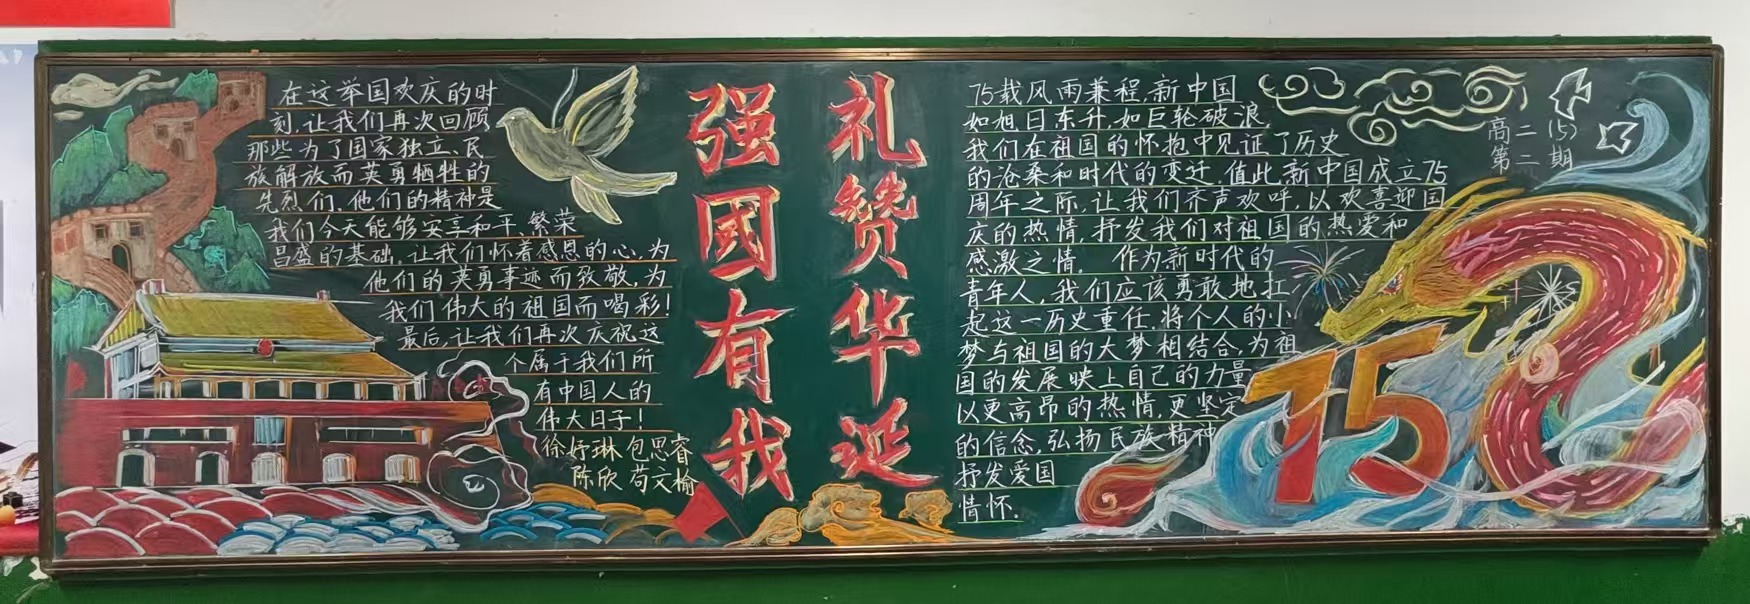 在这举国欢庆的时
刻，让我们再次回顾
那些为了国家独立、民
族解放而英勇牺牲的
先烈们，他们的精神是
我们今天能够安享和平、繁荣
昌盛的基础，让我们怀着感恩的心，为
他们的英勇事迹而致敬，为
我们伟大的祖国而喝彩！
最后，让我们再次庆祝这
个属于我们所
有中国人的
伟大日子！
徐妤琳 包思睿
陈欣 苟文榆
强国有我
礼赞华诞
75载风雨兼程，新中国
如旭日东升，如巨轮破浪
我们在祖国的怀抱中见证了历史
的沧桑和时代的变迁，值此新中国成立75
周年之际，让我们齐声欢呼，以欢喜迎国
庆的热情，抒发我们对祖国的热爱和
感激之情。 作为新时代的
青年人，我们应该勇敢地扛
起这一历史重任，将个人的小
梦与祖国的大梦相结合，为祖
国的发展映上自己的力量
以更高昂的热情，更坚定
的信念，弘扬民族精神
抒发爱国
情怀.
高二（5）
第二期
75